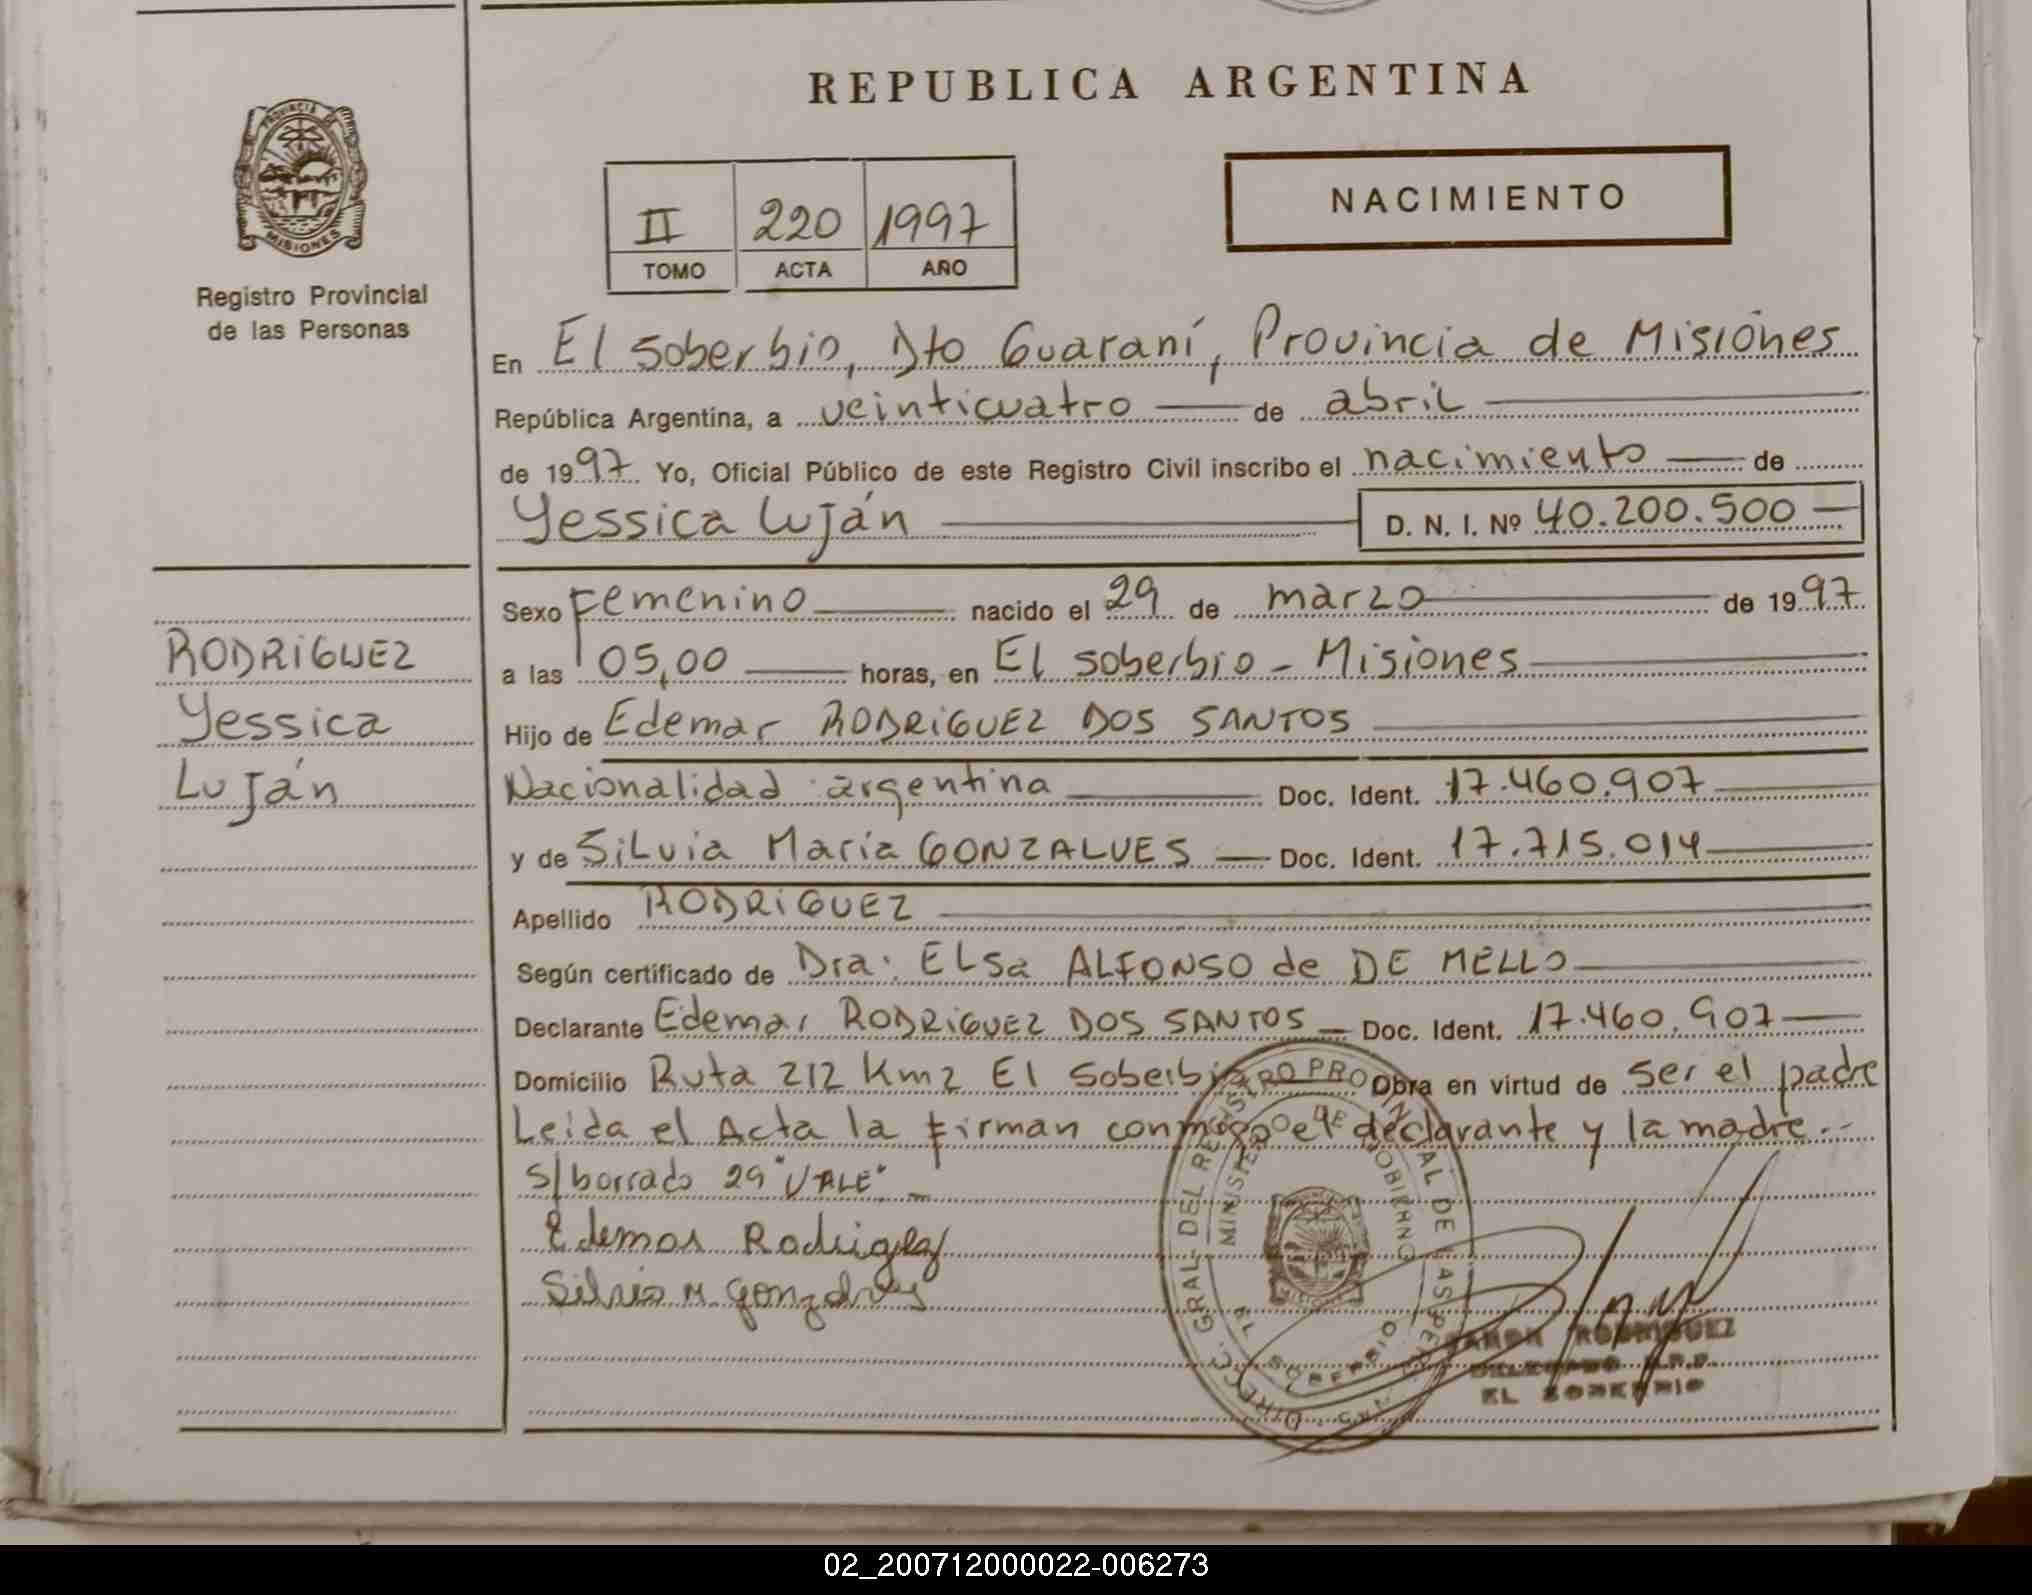 REPUBLICA ARGENTINA
PROVINCIA DE
MISIONES
Registro Provincial
de las Personas
II 220 1997
TOMO ACTA AÑO
NACIMIENTO
En El soberbio, Dto Guaraní, Provincia de Misiones
República Argentina, a veinticuatro de abril
de 1997 Yo, Oficial Público de este Registro Civil inscribo el nacimiento de
Yessica Luján D. N. I. Nº 40.200.500
Sexo Femenino nacido el 29 de marzo de 1997
a las 05,00 horas, en El soberbio - Misiones
Hijo de Edemar RODRIGUEZ DOS SANTOS
Nacionalidad argentina Doc. Ident. 17.460.907
y de Silvia María GONZALVES Doc. Ident. 17.715.014
Apellido RODRIGUEZ
Según certificado de Dra. Elsa ALFONSO de DE MELLO
Declarante Edemar RODRIGUEZ DOS SANTOS Doc. Ident. 17.460.907
Domicilio Ruta 212 Km2 El Soberbio Obra en virtud de ser el padre
Leida el Acta la firman conmigo el declarante y la madre.-
s/borrado 29 "VALE".-
Edemar Rodriguez
Silvia M Gonzalves
RODRIGUEZ
Yessica
Luján
DIRECC. GRAL. DEL REGISTRO PROVINCIAL DE LAS PERSONAS
MINISTERIO DE GOBIERNO
EL SOBERBIO
RAMON RODRIGUEZ
DELEGADO R.P.P.
EL SOBERBIO
02_200712000022-006273